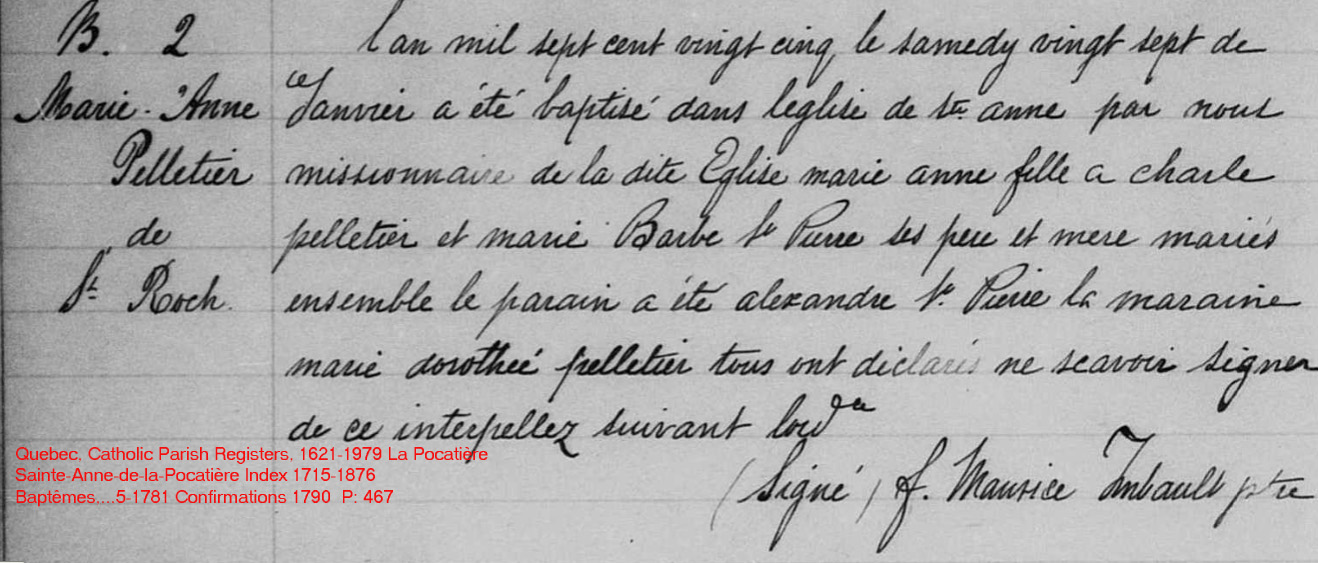 B. 2
Marie-Anne
Pelletier
de
St Roch.
l an mil sept cent vingt cinq, le samedy vingt sept de
ce
Janvier a été baptisé dans leglise de ste anne par nous
missionnaire de la dite Eglise marie anne fille a charle
pelletier et marie Barbe St Pierre ses pere et mere mariés
ensemble le parain a été alexandre St. Pierre la maraine
marie dorotheé pelletier tous ont déclarés ne scavoir signer
de ce interpellez suivant lordce
(Signé) f. Maurice Imbault ptre
Quebec, Catholic Parish Registers, 1621-1979 La Pocatière
Sainte-Anne-de-la-Pocatière Index 1715-1876
Baptêmes....5-1781 Confirmations 1790 P: 467